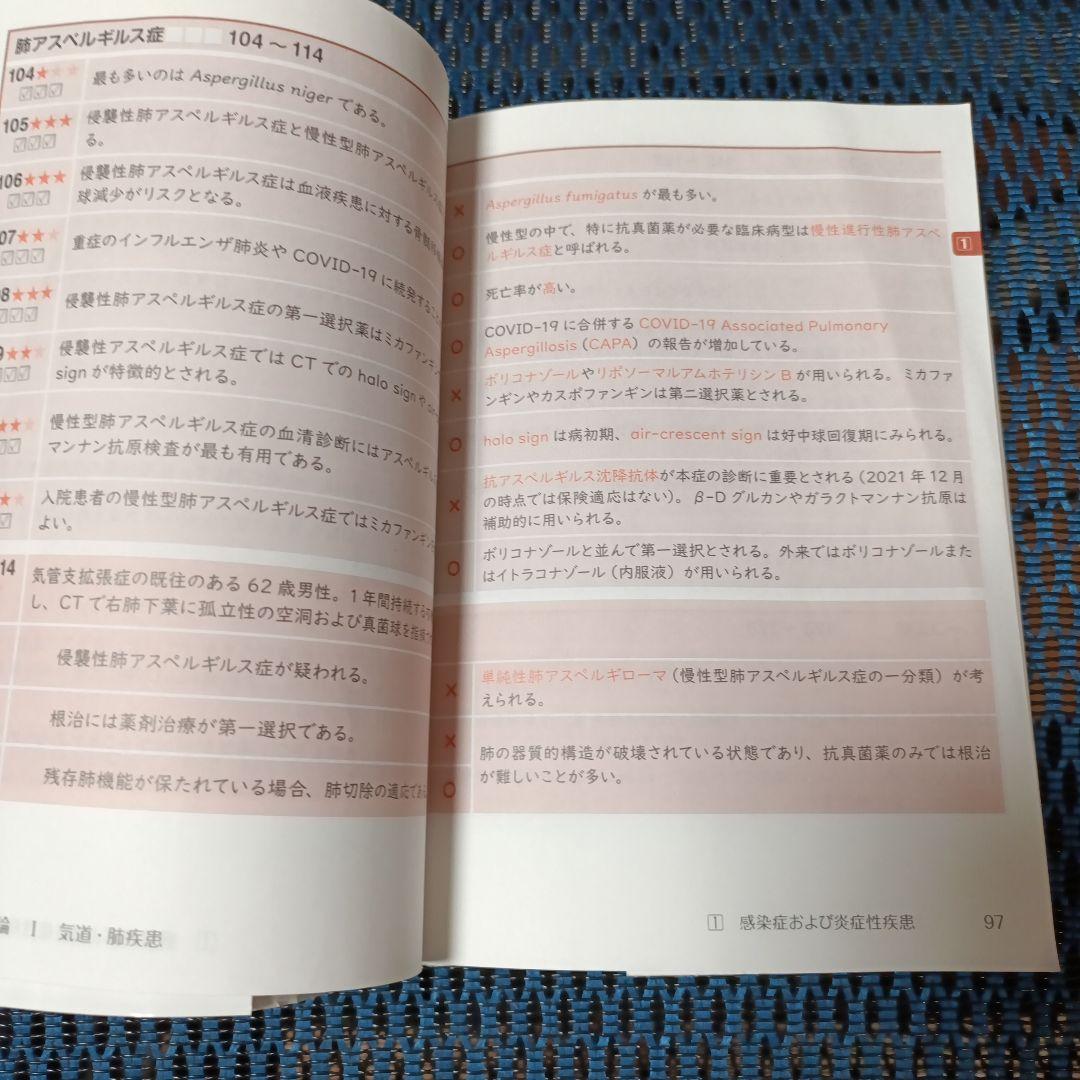 肺アスペルギルス症 104～114
104★★★
最も多いのは Aspergillus niger である。
105★★★
侵襲性肺アスペルギルス症と慢性型肺アスペルギルス
る。
106★★★
侵襲性肺アスペルギルス症は血液疾患に対する骨髄
球減少がリスクとなる。
07★★★
重症のインフルエンザ肺炎や COVID-19 に続発すること
8★★★
侵襲性肺アスペルギルス症の第一選択薬はミカファンギン
9★★★
侵襲性アスペルギルス症では CT での halo sign や
sign が特徴的とされる。
★★★
慢性型肺アスペルギルス症の血清診断にはアスペルギルス
マンナン抗原検査が最も有用である。
★★
入院患者の慢性型肺アスペルギルス症ではミカファンギン
よい。
14
気管支拡張症の既往のある 62 歳男性。1 年間持続する
し、CT で右肺下葉に孤立性の空洞および真菌球を指摘
侵襲性肺アスペルギルス症が疑われる。
根治には薬剤治療が第一選択である。
残存肺機能が保たれている場合、肺切除の適応である
論 Ⅰ 気道・肺疾患
× Aspergillus fumigatus が最も多い。
○ 慢性型の中で、特に抗真菌薬が必要な臨床病型は慢性進行性肺アスペ
ルギルス症と呼ばれる。
1
○ 死亡率が高い。
○ COVID-19 に合併する COVID-19 Associated Pulmonary
Aspergillosis (CAPA) の報告が増加している。
× ボリコナゾールやリポソーマルアムホテリシン B が用いられる。ミカファ
ンギンやカスポファンギンは第二選択薬とされる。
○ halo sign は病初期、air-crescent sign は好中球回復期にみられる。
× 抗アスペルギルス沈降抗体が本症の診断に重要とされる (2021 年 12 月
の時点では保険適応はない)。β-D グルカンやガラクトマンナン抗原は
補助的に用いられる。
○ ボリコナゾールと並んで第一選択とされる。外来ではボリコナゾールまた
はイトラコナゾール (内服液) が用いられる。
× 単純性肺アスペルギローマ (慢性型肺アスペルギルス症の一分類) が考
えられる。
× 肺の器質的構造が破壊されている状態であり、抗真菌薬のみでは根治
が難しいことが多い。
○
1 感染症および炎症性疾患 97